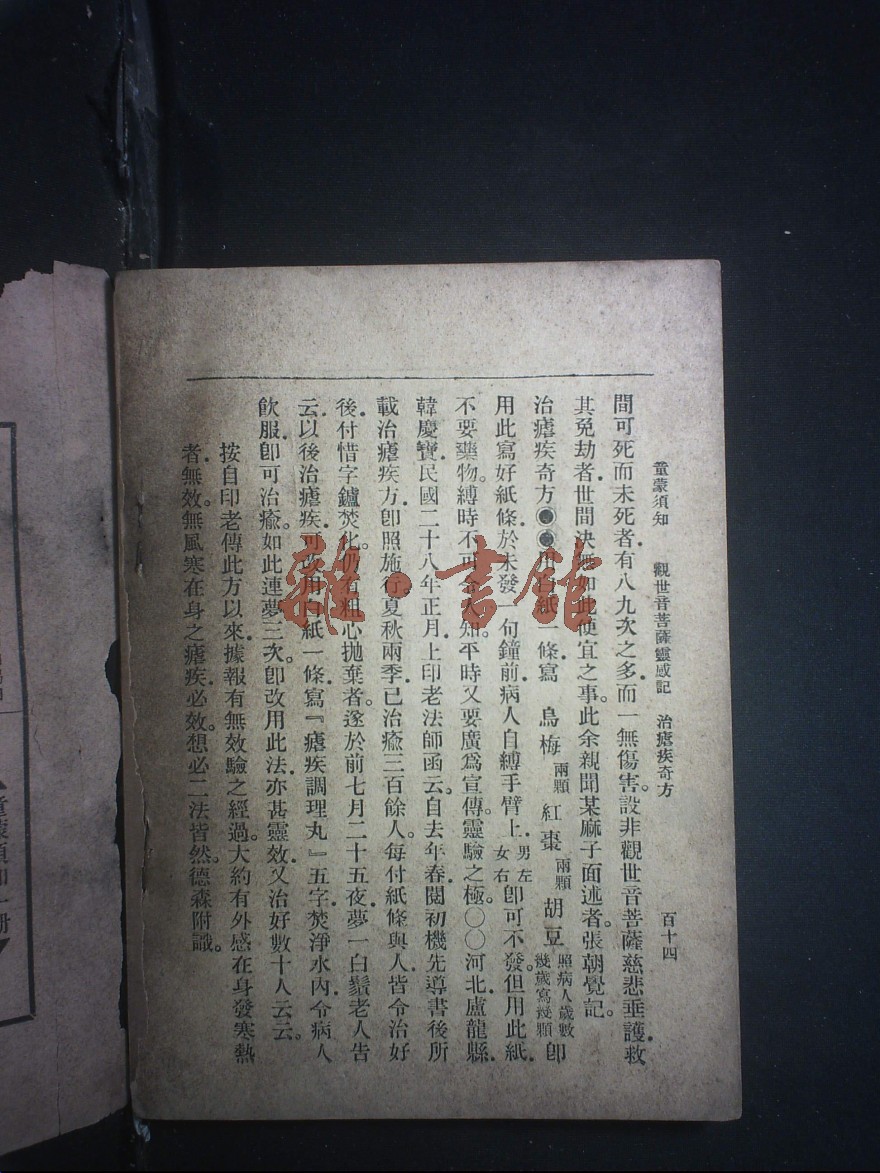 童蒙須知　觀世音菩薩靈感記　治瘧疾奇方　百十四
間可死而未死者．有八九次之多．而一無傷害。設非觀世音菩薩慈悲垂護．救
其免劫者．世間決無如此便宜之事。此余親聞某麻子面述者。張朝覺記。
治瘧疾奇方◉◉用白紙一條．寫　烏梅兩顆　紅棗兩顆　胡豆照病人歲數幾歲寫幾顆　卽
用此寫好紙條．於未發一句鐘前．病人自縛手臂上．男左女右　卽可不發。但用此紙．
不要藥物。縛時不可令人知。平時又要廣爲宣傳。靈驗之極。〇〇河北盧龍縣．
韓慶寶．民國二十八年正月．上印老法師函云．自去年春．閱初機先導書後所
載治瘧疾方．卽照施行．夏秋兩季．已治癒三百餘人。每付紙條與人．皆令治好
後．付惜字鑪焚化。仍有粗心拋棄者。遂於前七月二十五夜．夢一白鬍老人告
云．以後治瘧疾．可改用白紙一條．寫『瘧疾調理丸』五字．焚淨水內．令病人
飲服．卽可治癒。如此連夢三次。卽改用此法．亦甚靈效．又治好數十人云云。
按自印老傳此方以來．據報有無效驗之經過．大約有外感在身發寒熱
者．無效。無風寒在身之瘧疾．必效。想必二法皆然。德森附識。
雜·書館